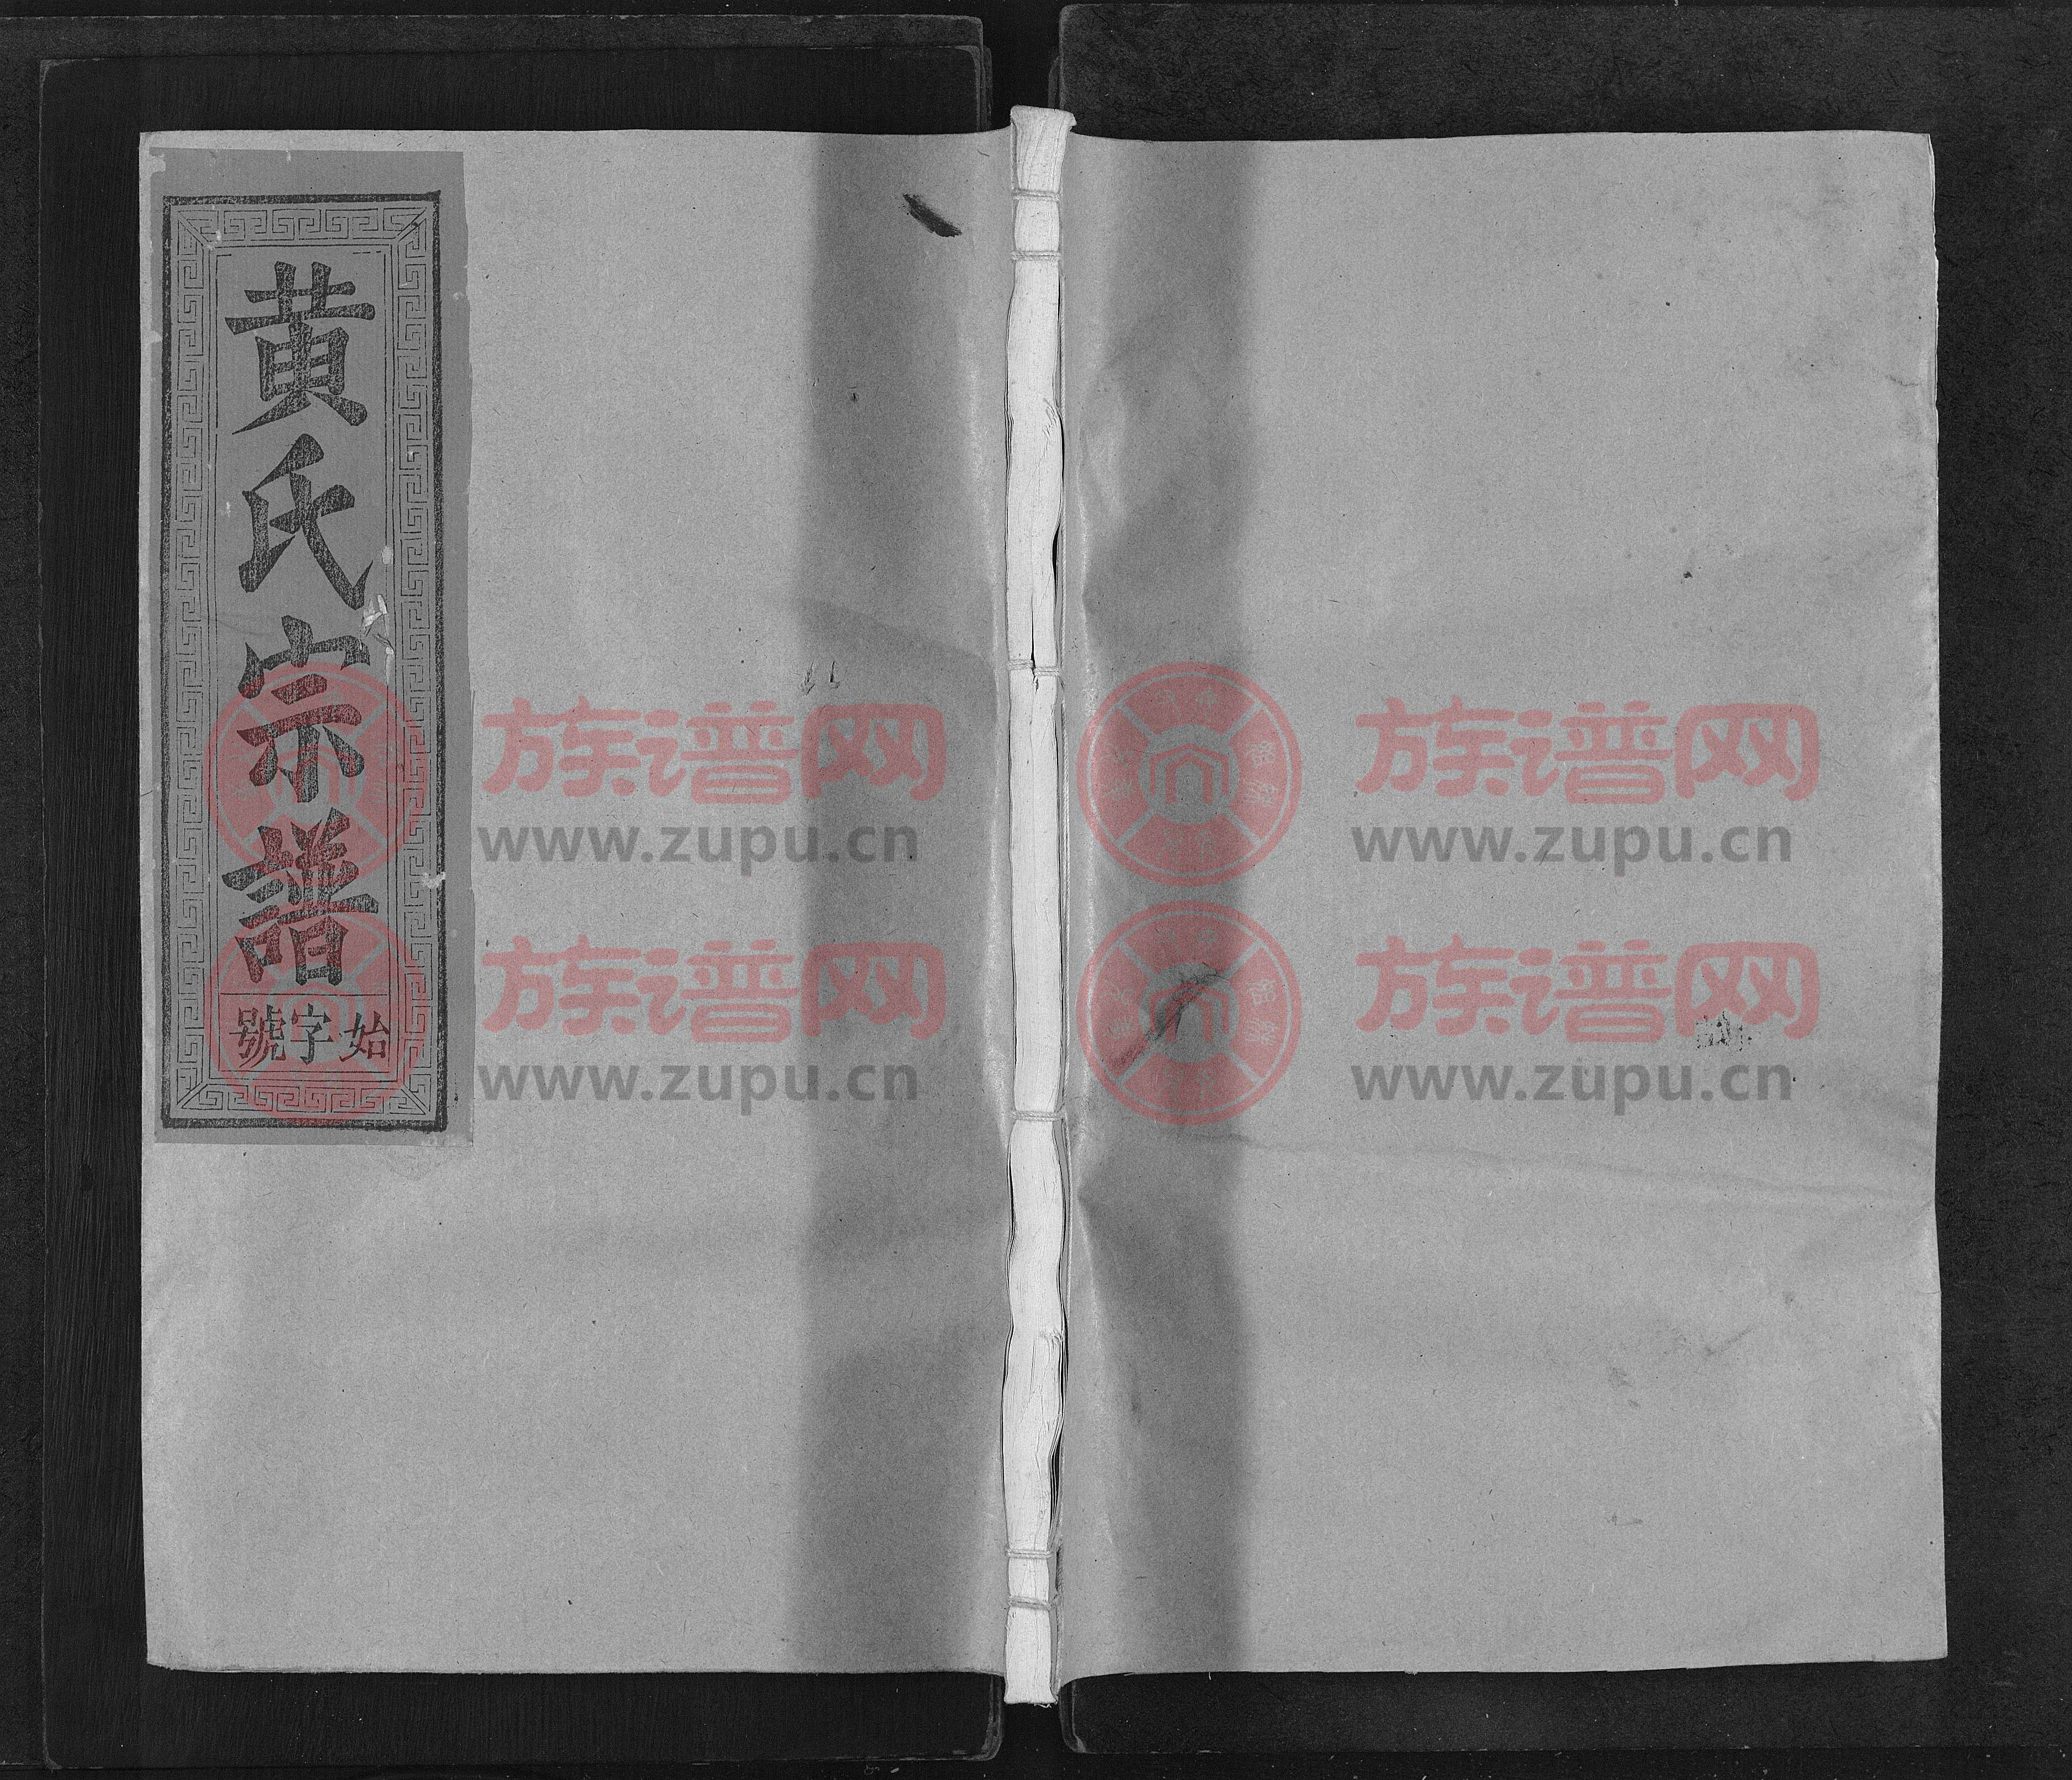 黄氏宗譜
始字號
族谱网
www.zupu.cn
族谱网
www.zupu.cn
族谱网
www.zupu.cn
族谱网
www.zupu.cn